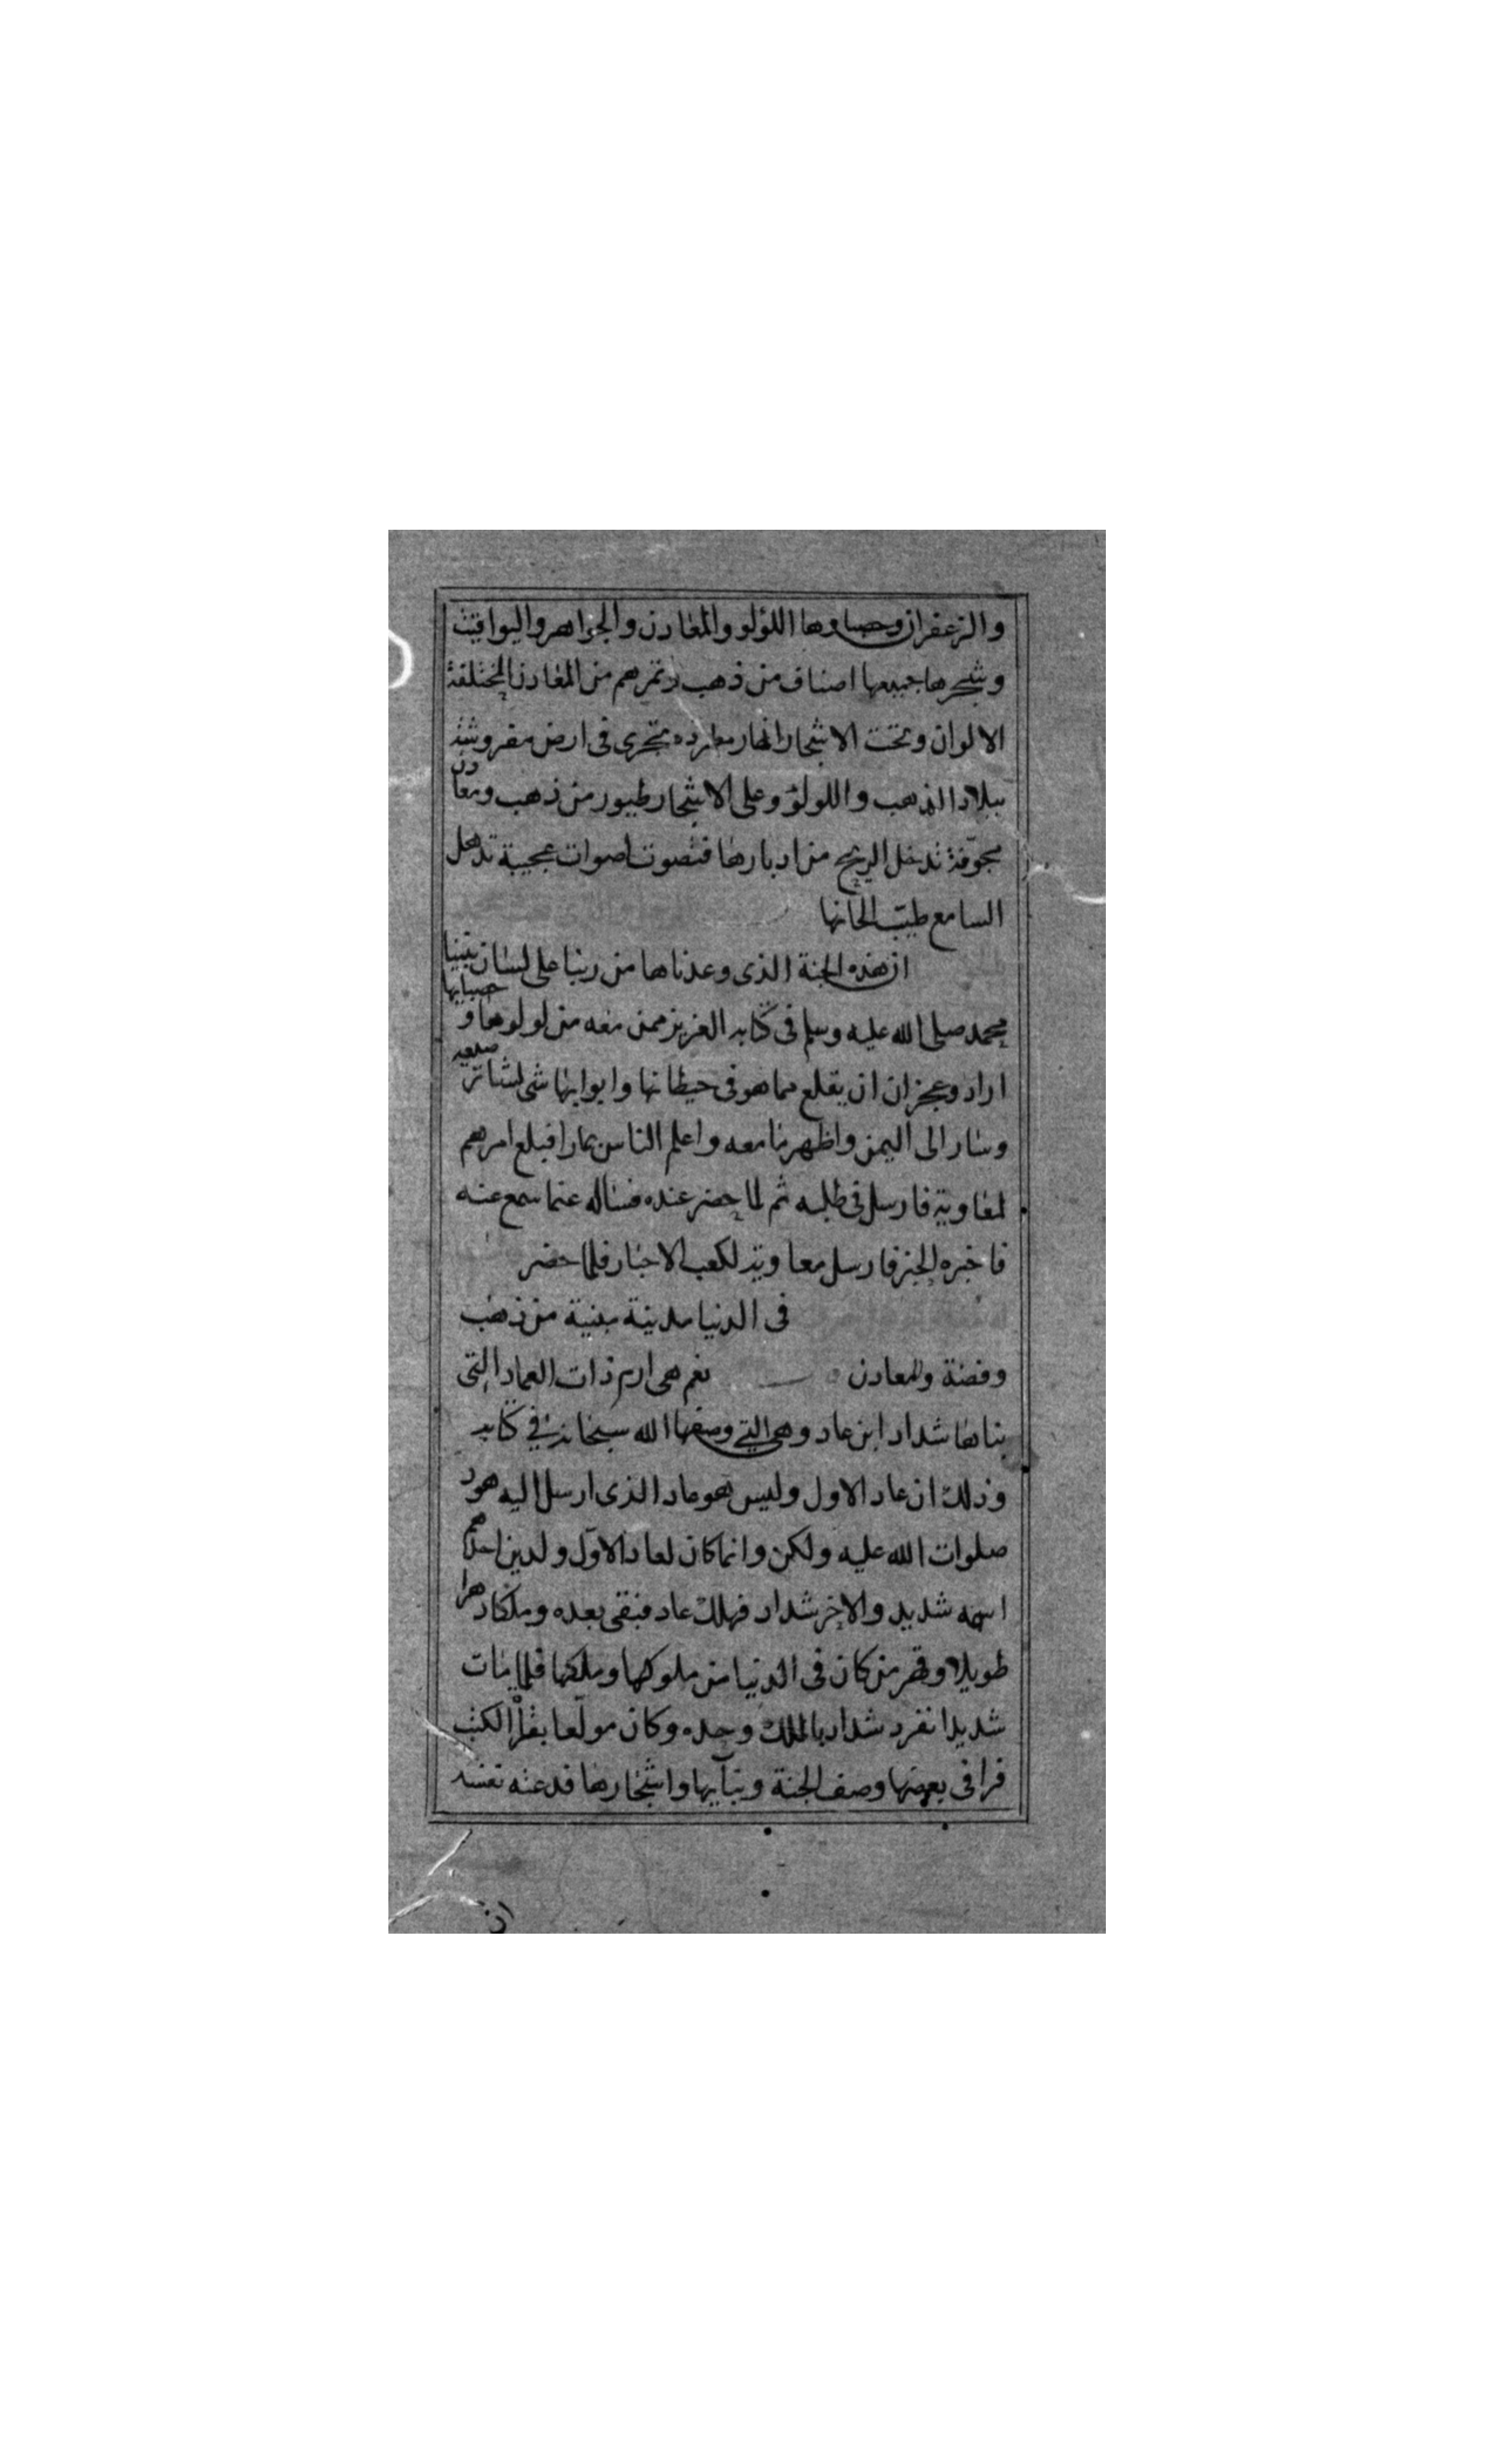 والزعفران وحصاوها اللؤلو والمعادن والجواهر واليواقيت
وشجرها جميعها اصناف من ذهب وثمرهم من المعادن المختلفة
الالوان وتحت الاشجار انهار مطرده تجرى فى ارض مفروشة
ببلاد الذهب واللولؤ وعلى الاشجار طيور من ذهب ومعادن
مجوّفة تدخل الريح من ادبارها فتصوت اصوات عجيبة تدهل
السامع طيب الحانها
ان هذه الجنة الذى وعدناها من ربنا على لسان نبينا
محمد صلى الله عليه وسلم فى كتابه العزيز من معه من لولوها و حصبايها
اراد وعجز ان ان يقلع مما هو فى حيطانها وابوابها شى لشاتر صنعه
وسار الى اليمن واظهر ما معه واعلم الناس بما را فبلغ امرهم
لمعاوية فارسل فى طلبه ثم لما حضر عنده فساله عما سمع عنه
فاخبره الخبر فارسل معاوية لكعب الاحبار فلما حضر
فى الدنيا مدينة مبنية من ذهب
وفضة والمعادن نعم هى ارم ذات العماد التى
بناها شداد ابن عاد وهى التى وصفها الله سبحانه فى كتابه
وذلك ان عاد الاول وليس هو عاد الذى ارسل اليه هود
صلوات الله عليه ولكن وانما كان لعاد الاوّل ولدين احدهم
اسمه شديد والاخر شداد فهلك عاد فبقى بعده وملكا دهرا
طويلا وقهر من كان فى الدنيا من ملوكها وملكها فلما مات
شديد انفرد شداد بالملك وحده وكان مولّعا بقرأ الكتب
فرا فى بعضها وصف الجنة وبنآيها واشجارها فدعته نفسه
ان